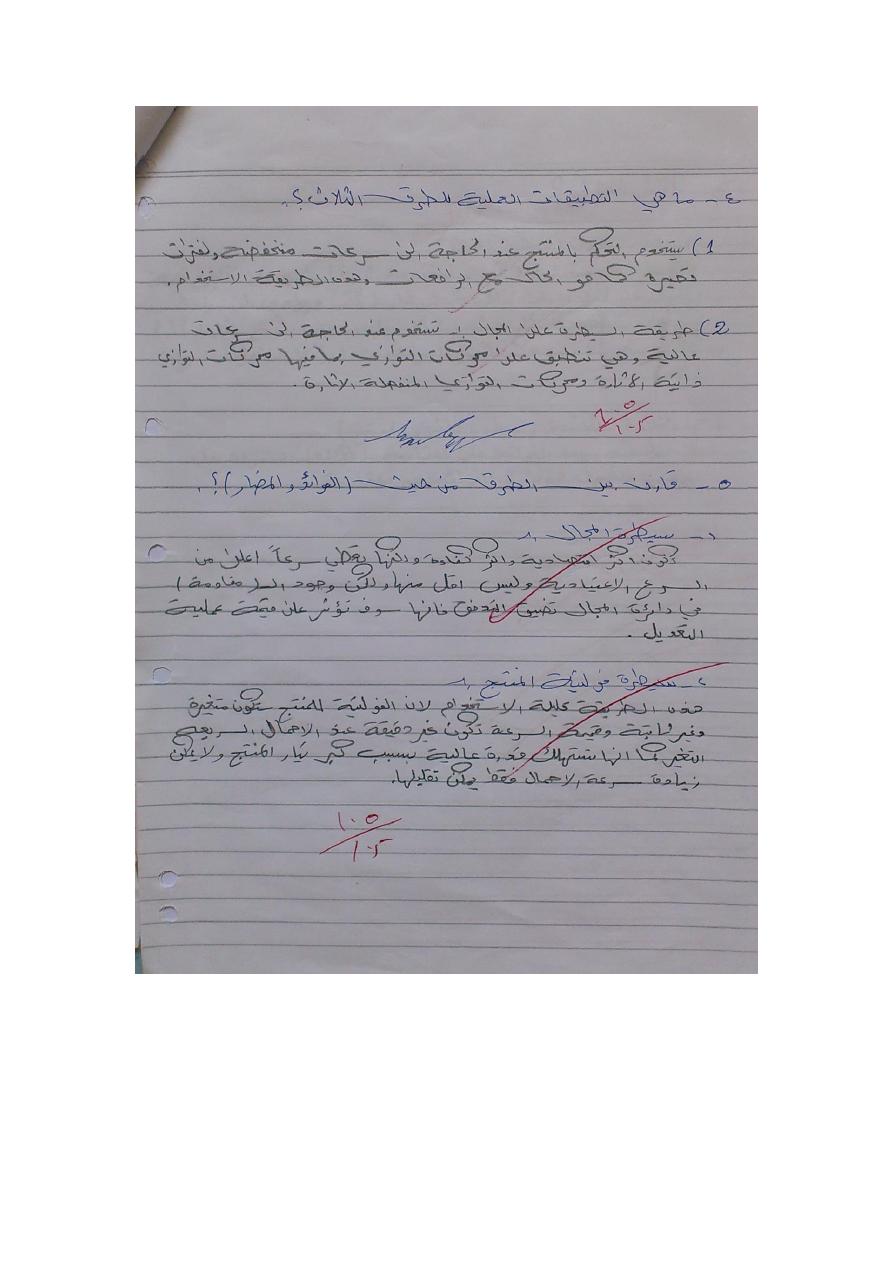 ٤- ما هي التطبيقات العملية للطرق الثلاث؟
1) يستخدم التحكم بالمنتج عند الحاجة الى سرعات منخفضة ولفترات
قصيرة كما هو الحال مع الرافعات وهذه الطريقة الاستخدام.
2) طريقة السيطرة على المجال :- تستخدم عند الحاجة الى سرعات
عالية وهي تنطبق على محركات التوازي بما فيها محركات التوازي
ذاتية الاثارة ومحركات التوازي المنفصلة الاثارة.
1.5
1.5
٥- قارن بين الطرق من حيث (الفوائد والمضار)؟
١- سيطرة المجال :-
تكون اكثر اقتصادية واكثر كفاءة ولكنها يعطي سرعاً اعلى من
السرع الاعتيادية وليس اقل منها ولكن وجود الـ(مقاومة)
في دائرة المجال تضيق التدفق فانها سوف تؤثر على قيمة عملية
التعويل.
٢- سيطرة فولتية المنتج :-
هذه الطريقة قليلة الاستخدام لان الفولتية للمنتج ستكون متغيرة
وغير ثابتة وقيمة السرعة تكون غير دقيقة عند الاحمال السريعة
التغير كما انها تستهلك قدرة عالية بسبب كبر تيار المنتج ولا يمكن
زيادة سرعة الاحمال فقط يمكن تقليلها.
1.5
1.5